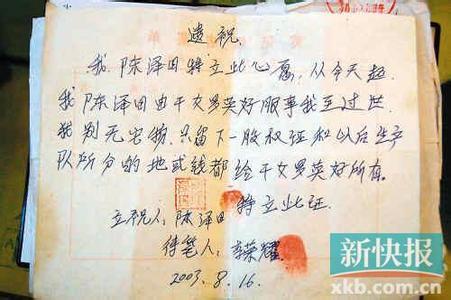 遗祝
我 陈泽田特立此心愿,从今天起.
我陈泽田由干女罗英好服事我至过世
我别无物,只留下一股权证和以后生产
队所分的地或钱都给干女罗英好所有.
立祝人,陈泽田 特立此证.
待笔人:李荣耀
2003.8.16.
新快报
xkb.com.cn